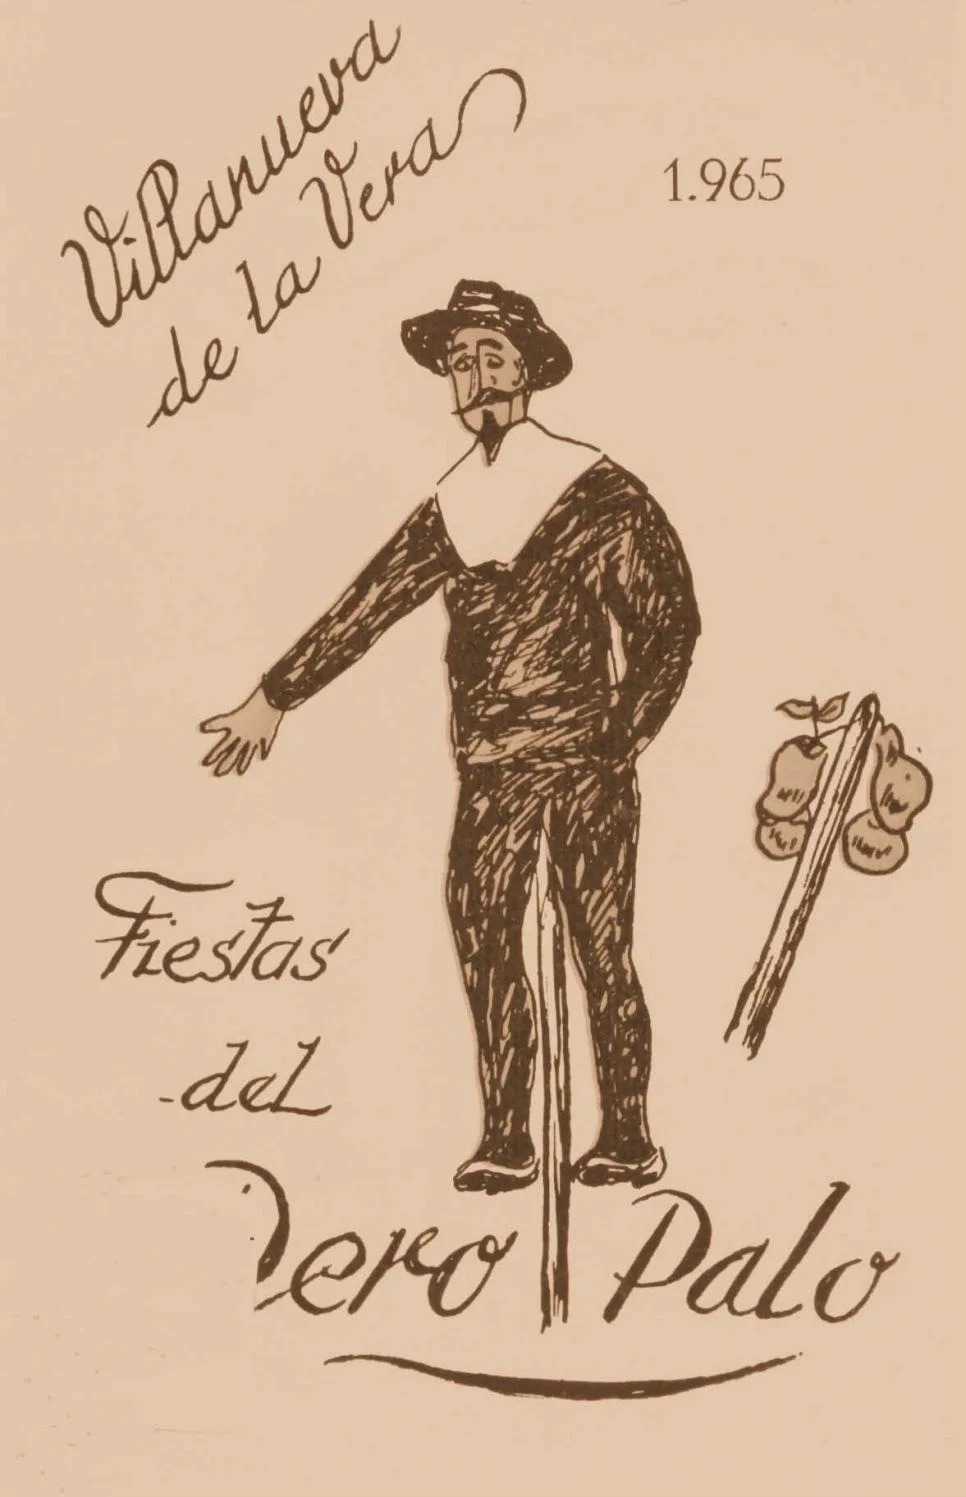 Villanueva
de la Vera
1.965
Fiestas
del
Pero Palo